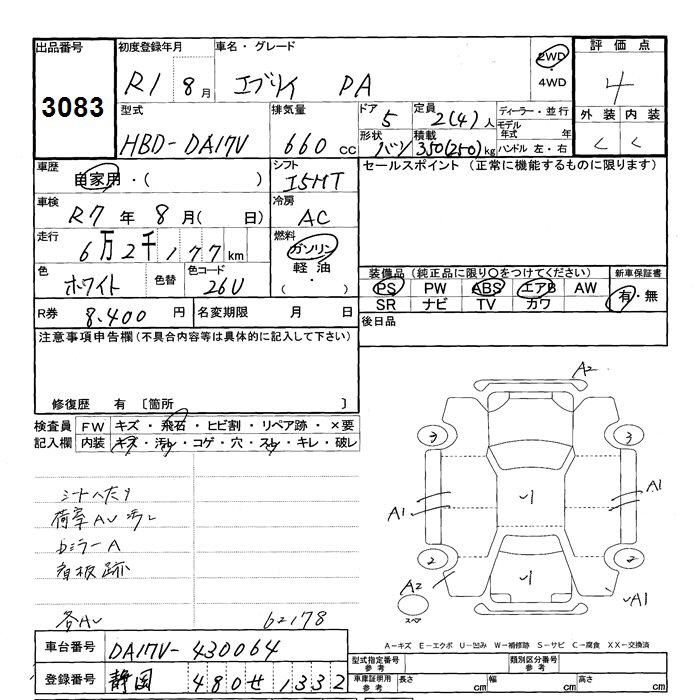 出品番号 3083
初度登録年月 R1 8月
車名・グレード エブリイ PA
2WD・4WD
評価点 4
型式 HBD-DA17V
排気量 660 cc
ドア 5
定員 2(4)人
形状 バン
積載 350(250)kg
ディーラー・並行
モデル年式 年
ハンドル 左・右
外装 内装
C C
車歴 自家用・( )
シフト I5MT
セールスポイント (正常に機能するものに限ります)
車検 R7年 8月( 日)
冷房 AC
走行 6万2千177km
燃料 ガソリン・軽油・( )
色 ホワイト
色替
色コード 26U
装備品(純正品に限り○をつけてください)
新車保証書 有・無
PS PW ABS エアB AW
SR ナビ TV カワ
R券 8.400 円
名変期限 月 日
後日品
注意事項申告欄(不具合内容等は具体的に記入して下さい)
修復歴 有 〔箇所 〕
検査員記入欄
FW キズ・飛石・ヒビ割・リペア跡・×要
内装 キズ・汚れ・コゲ・穴・スレ・キレ・破レ
シートへたり
荷室AU汚レ
ミラーA
看板跡
各AU
62178
A2
3 3
A1 1 A1
2 2
A2 1 A1
スペア
A-キズ E-エクボ U-凹み W-補修跡 S-サビ C-腐食 XX-交換済
車台番号 DA17V-430064
登録番号 静岡 480 せ 1332
型式指定番号 参考
類別区分番号 参考
車庫証明用 参考 長さ cm 幅 cm 高さ cm